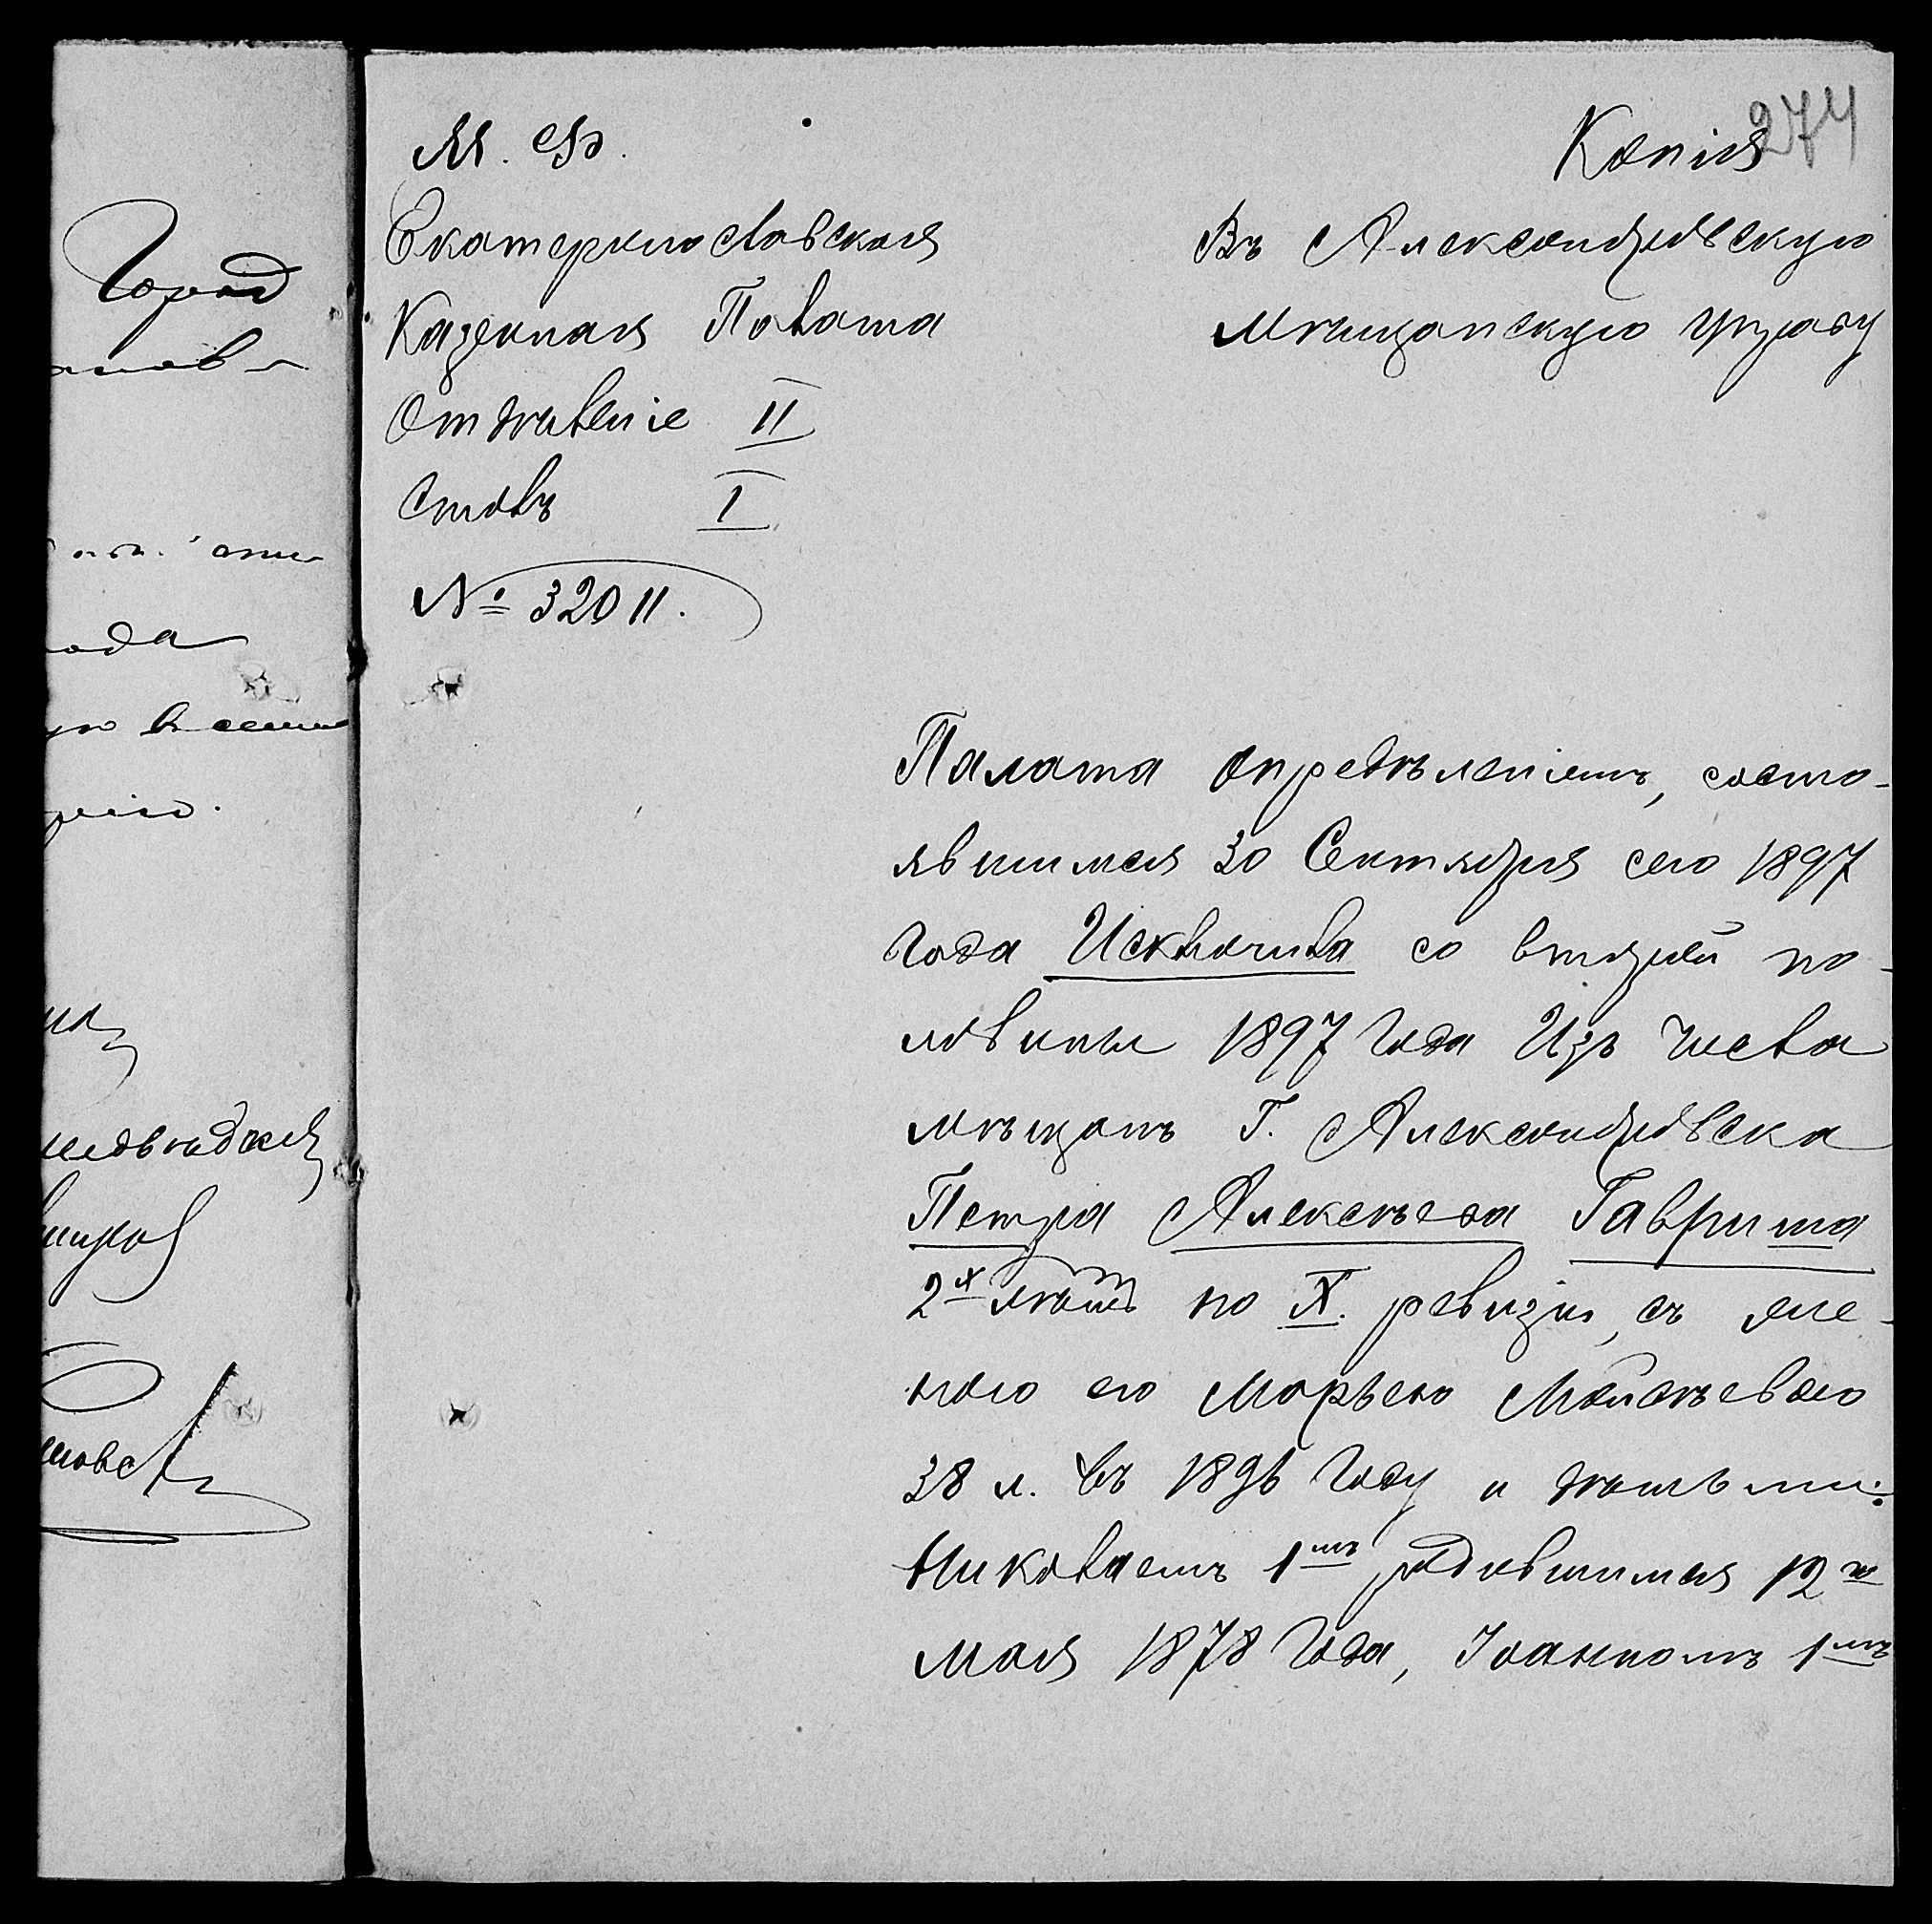 274
М. Ф.
Копія
Екатеринославская
Казенная Палата
Отдѣленіе II
Столъ I
№ 32011.
Въ Александровскую
Мѣщанскую Управу
Палата опредѣленіемъ, состо-
явшимся 30 Сентября сего 1897
года Исключила со второй по-
ловины 1897 года Изъ числа
мѣщанъ Г. Александровска
Петра Алексѣева Гавриша
2х лѣтъ по X. ревизіи, съ же-
ною его Марьею Моисѣевою
38 л. въ 1896 году и дѣтьми:
Николаемъ 1мъ родившимся 12го
мая 1878 года, Іоанномъ 1мъ
Город
ода